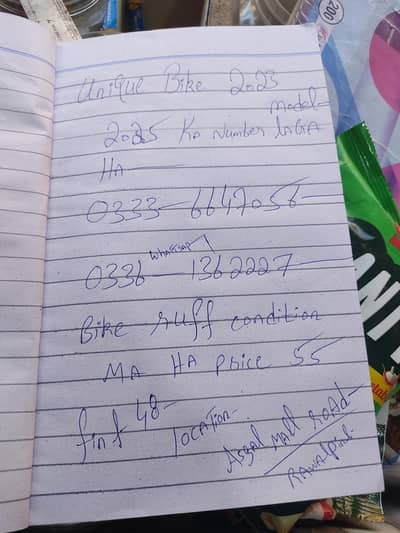 Unique Bike 2023
model
2025 Ka Number laGA
HA
0333 6647056
whatsap
0336 1362227
Bike ruff condition
MA HA price 55
finf 48
location
Mall road
Rawalpindi
200